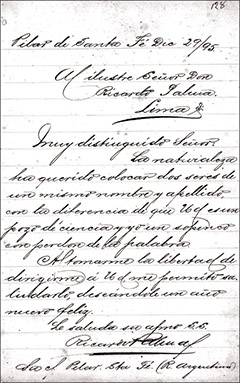 128
Pilar di Santa Fé Dic 29/95
Al ilustre Señor Don
Ricardo Palma
Lima
Muy distinguido Señor:
La naturaleza
ha querido colocar dos seres de
un mismo nombre y apellido
con la diferencia de que Ud es un
pozo de ciencia y yo un
con perdon de la palabra.
Al tomarme la libertad de
dirigirme á Ud me permito sa-
ludarlo, deseándole un año
nuevo feliz.
Le saluda su afmo S.S.
Ricardo Palma
Pilar. Sta Fé (R. Argentina)